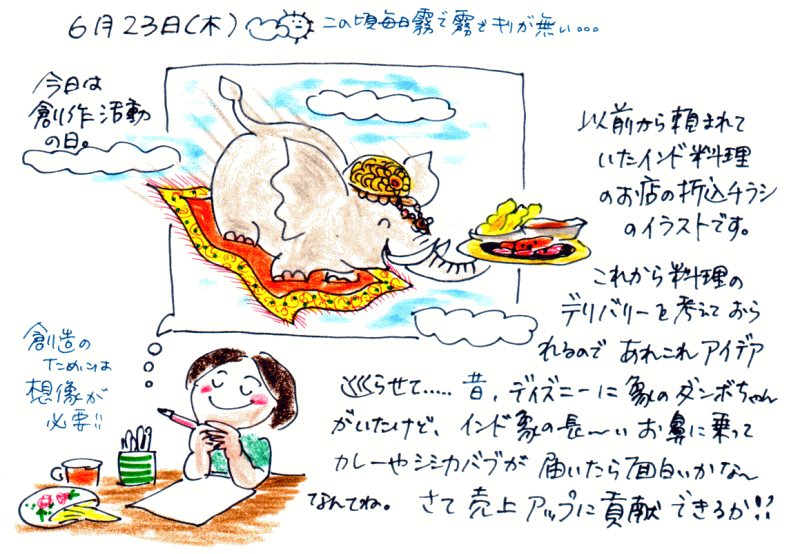 6月23日(木)
この頃毎日霧で霧がキリが無い...
今日は
創作活動
の日。
以前から頼まれて
いたインド料理
のお店の折込チラシ
のイラストです。
これから料理の
デリバリーを考えておら
れるので あれこれアイデア
巡らせて..... 昔、ディズニーに象のダンボちゃん
がいたけど、インド象の長〜いお鼻に乗って
カレーやシシカバブが 届いたら面白いかな〜
なんてね。 さて 売上アップに貢献できるか!!
創造の
ためには
想像が
必要!!